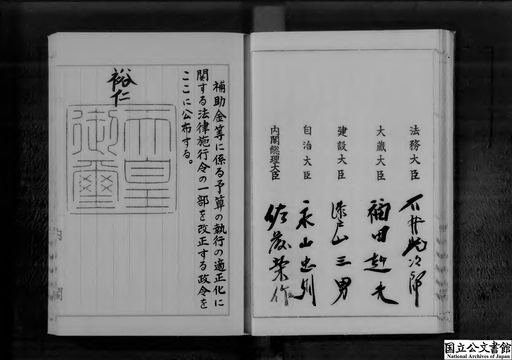 法務大臣 石井光次郎
大蔵大臣 福田赳夫
建設大臣 瀬戸山三男
自治大臣 永山忠則
内閣総理大臣 佐藤榮作
補助金等に係る予算の執行の適正化に
関する法律施行令の一部を改正する政令を
ここに公布する。
裕仁
天皇
御璽
国立公文書館
National Archives of Japan